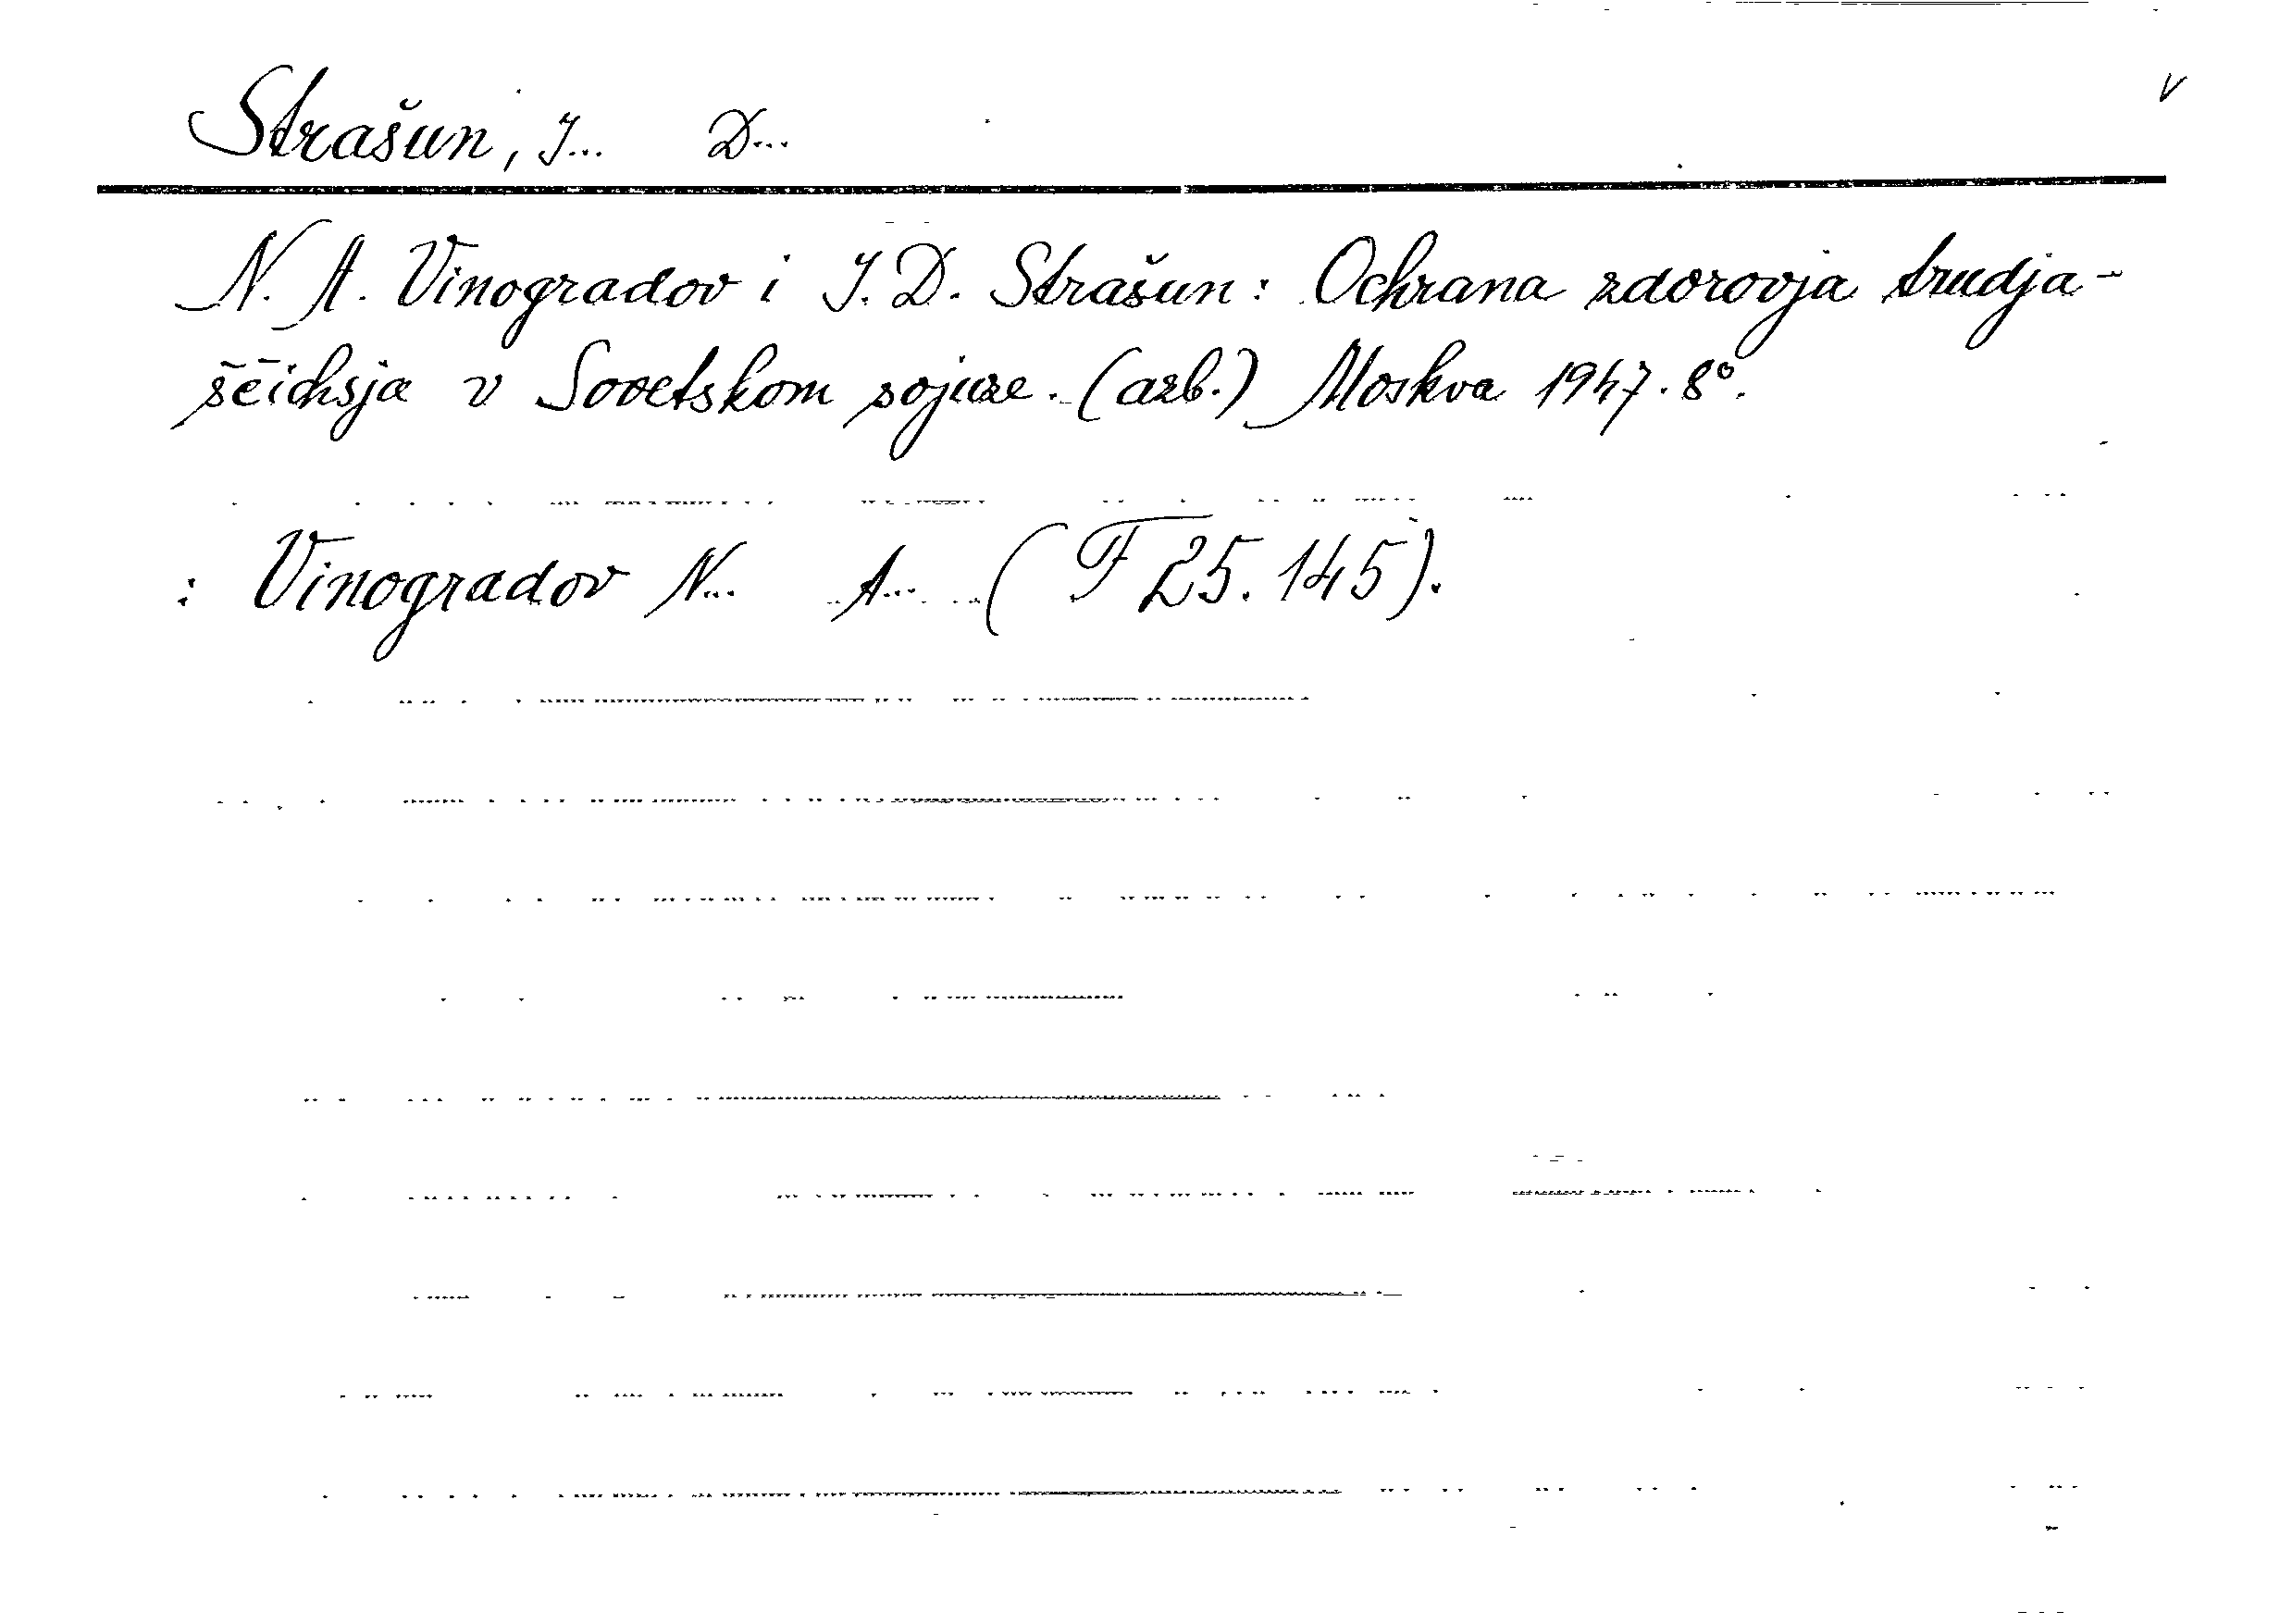 V
Strašun, J... D...
N. A. Vinogradov i J. D. Strašun: Ochrana zdorovja trudja-
ščichsja v Sovetskom sojuze. (azb.) Moskva 1947. 8°.
: Vinogradov N... A... (F 25.145).